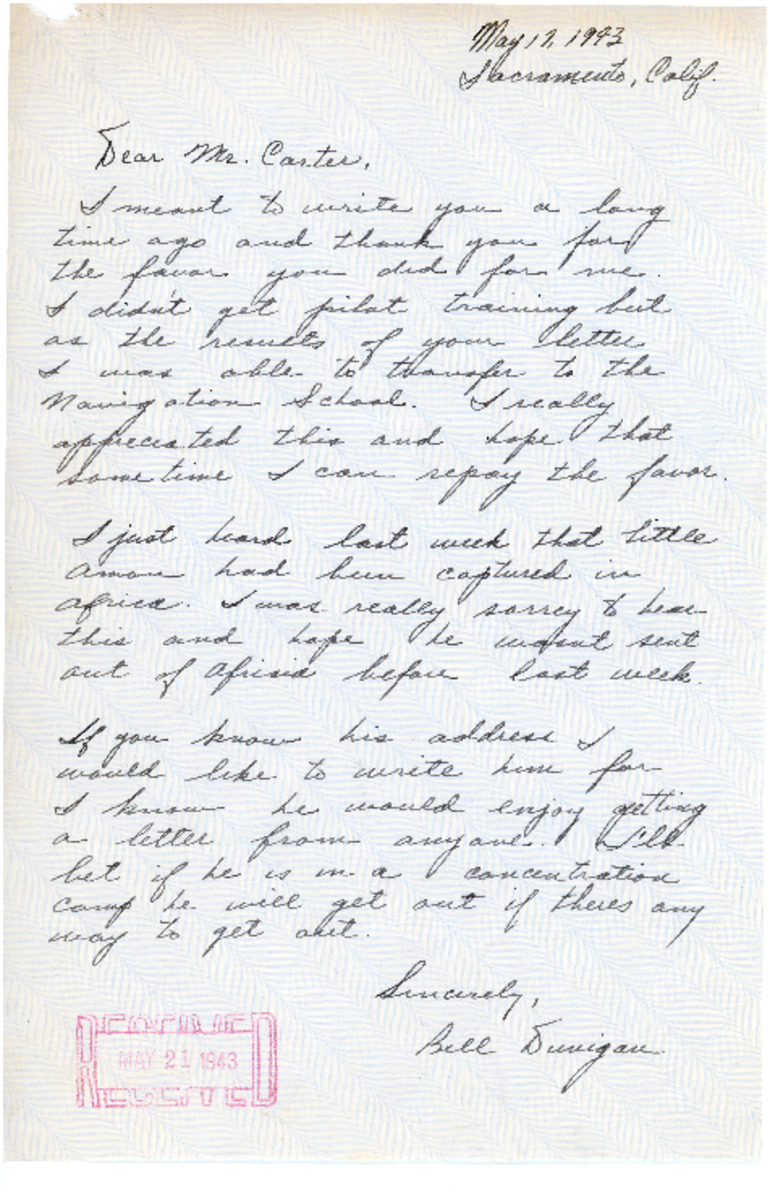 May 17, 1943
Sacramento, Calif.
Dear Mr. Carter,
I meant to write you a long
time ago and thank you for
the favor you did for me.
I didn't get pilot training but
as the results of your letter
I was able to transfer to the
Navigation School. I really
appreciated this and hope that
sometime I can repay the favor.
I just heard last week that little
Amon had been captured in
Africa. I was really sorrey to hear
this and hope he wasnt sent
out of Africa before last week.
If you know his address I
would like to write him for
I know he would enjoy getting
a letter from anyone. I'll
bet if he is in a concentration
camp he will get out if theres any
way to get out.
Sincerely,
Bill Dunigan
RECEIVED
MAY 21 1943
RECEIVED